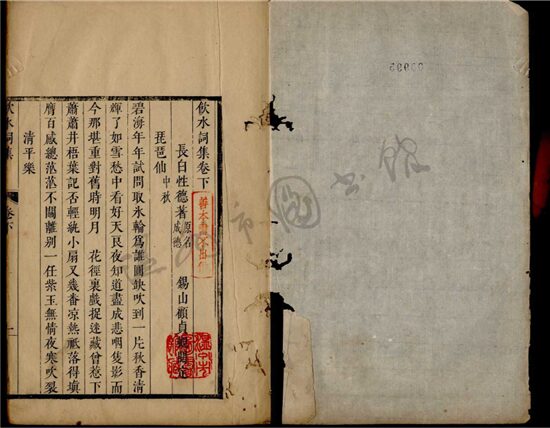 飲水詞集卷下
長白性德著 原名成德 錫山顧貞觀閱定
琵琶仙 中秋
碧海年年試問取氷輪爲誰圓缺吹到一片秋香清
輝了如雪愁中看好天良夜知道盡成悲咽隻影而
今那堪重對舊時明月 花徑裏戲捉迷藏曾惹下
蕭蕭井梧葉記否輕紈小扇又幾番凉熱祗落得塡
膺百感總茫茫不關離別一任紫玉無情夜寒吹裂
清平樂
飲水詞集 卷下 一
善本書不出
市圖書館